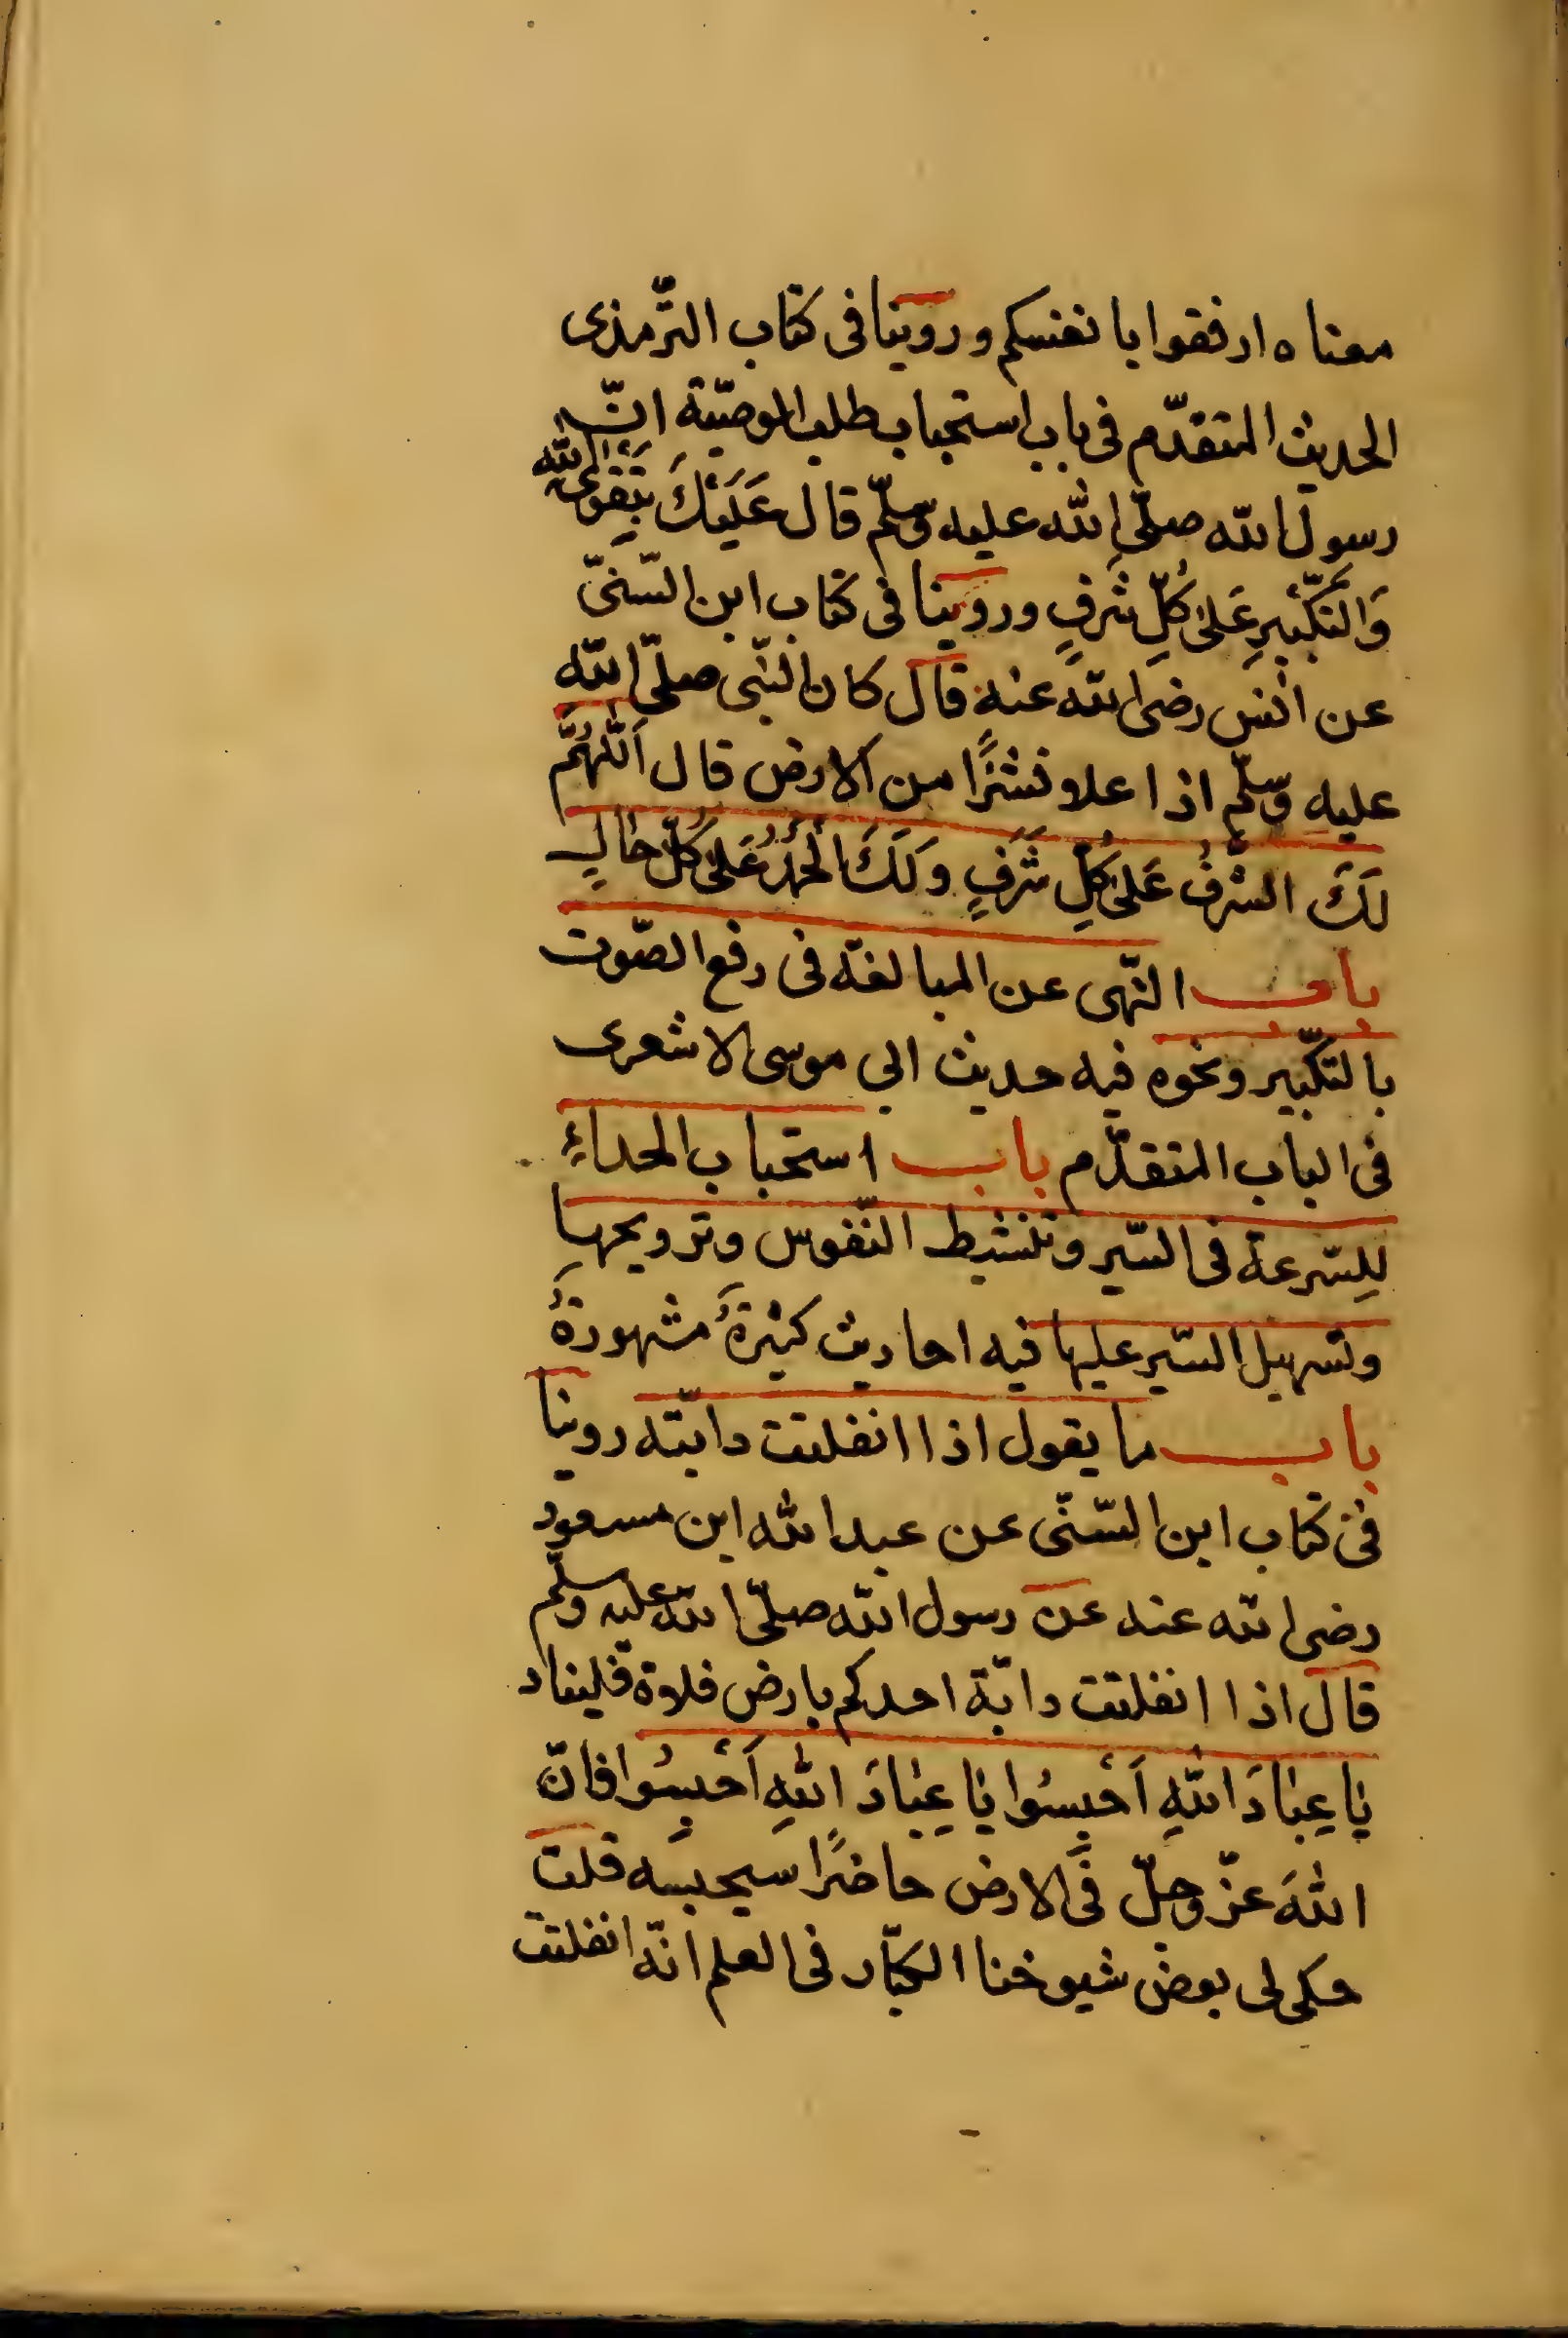 معناه ارفقوا بانفسكم وروينا فى كتاب الترّمذى
الحديث المتقدّم فى باب استحباب طلب الوصيّة انّ
رسول الله صلّى الله عليه وسلّم قال عَلَيْكَ بِتَقْوَى الله
وَالتَّكْبِيرِ عَلىٰ كُلِّ شَرَفٍ وروينا فى كتاب ابن السّنىّ
عن انس رضى الله عنه قال كان النبّى صلّى الله
عليه وسلّم اذا علا نشزًا من الارض قال اَللّٰهُمَّ
لَكَ الشَّرَفُ عَلىٰ كُلِّ شَرَفٍ وَلَكَ الْحَمْدُ عَلىٰ كُلِّ حٰالٍ
باب النّهى عن المبالغة فى رفع الصّوت
بالتكّبير ونحوه فيه حديث ابي موسى الاشعرى
فى الباب المتقدّم باب استحباب الحداءِ
لِلسّرعة فى السّير وتنشيط النّفوس وترويحها
وتسهيل السّير عليها فيه احاديث كثيرةٌ مشهورةٌ
باب ما يقول اذا انفلتت دابّته روينا
فى كتاب ابن السّنّى عن عبد الله ابن مسعود
رضى الله عنه عن رسول الله صلّى الله عليه وسلّم
قال اذا انفلتت دابّة احدكم بارض فلاة فليناد
يٰا عِبٰادَ اللهِ اَحْبِسُوا يٰا عِبٰادَ اللهِ اَحْبِسُوا فانّ
اللهَ عزّ وجلّ فى الارض حاضرًا سيحبسه قلت
حكى لى بعض شيوخنا الكبّار فى العلم انّه انفلتت